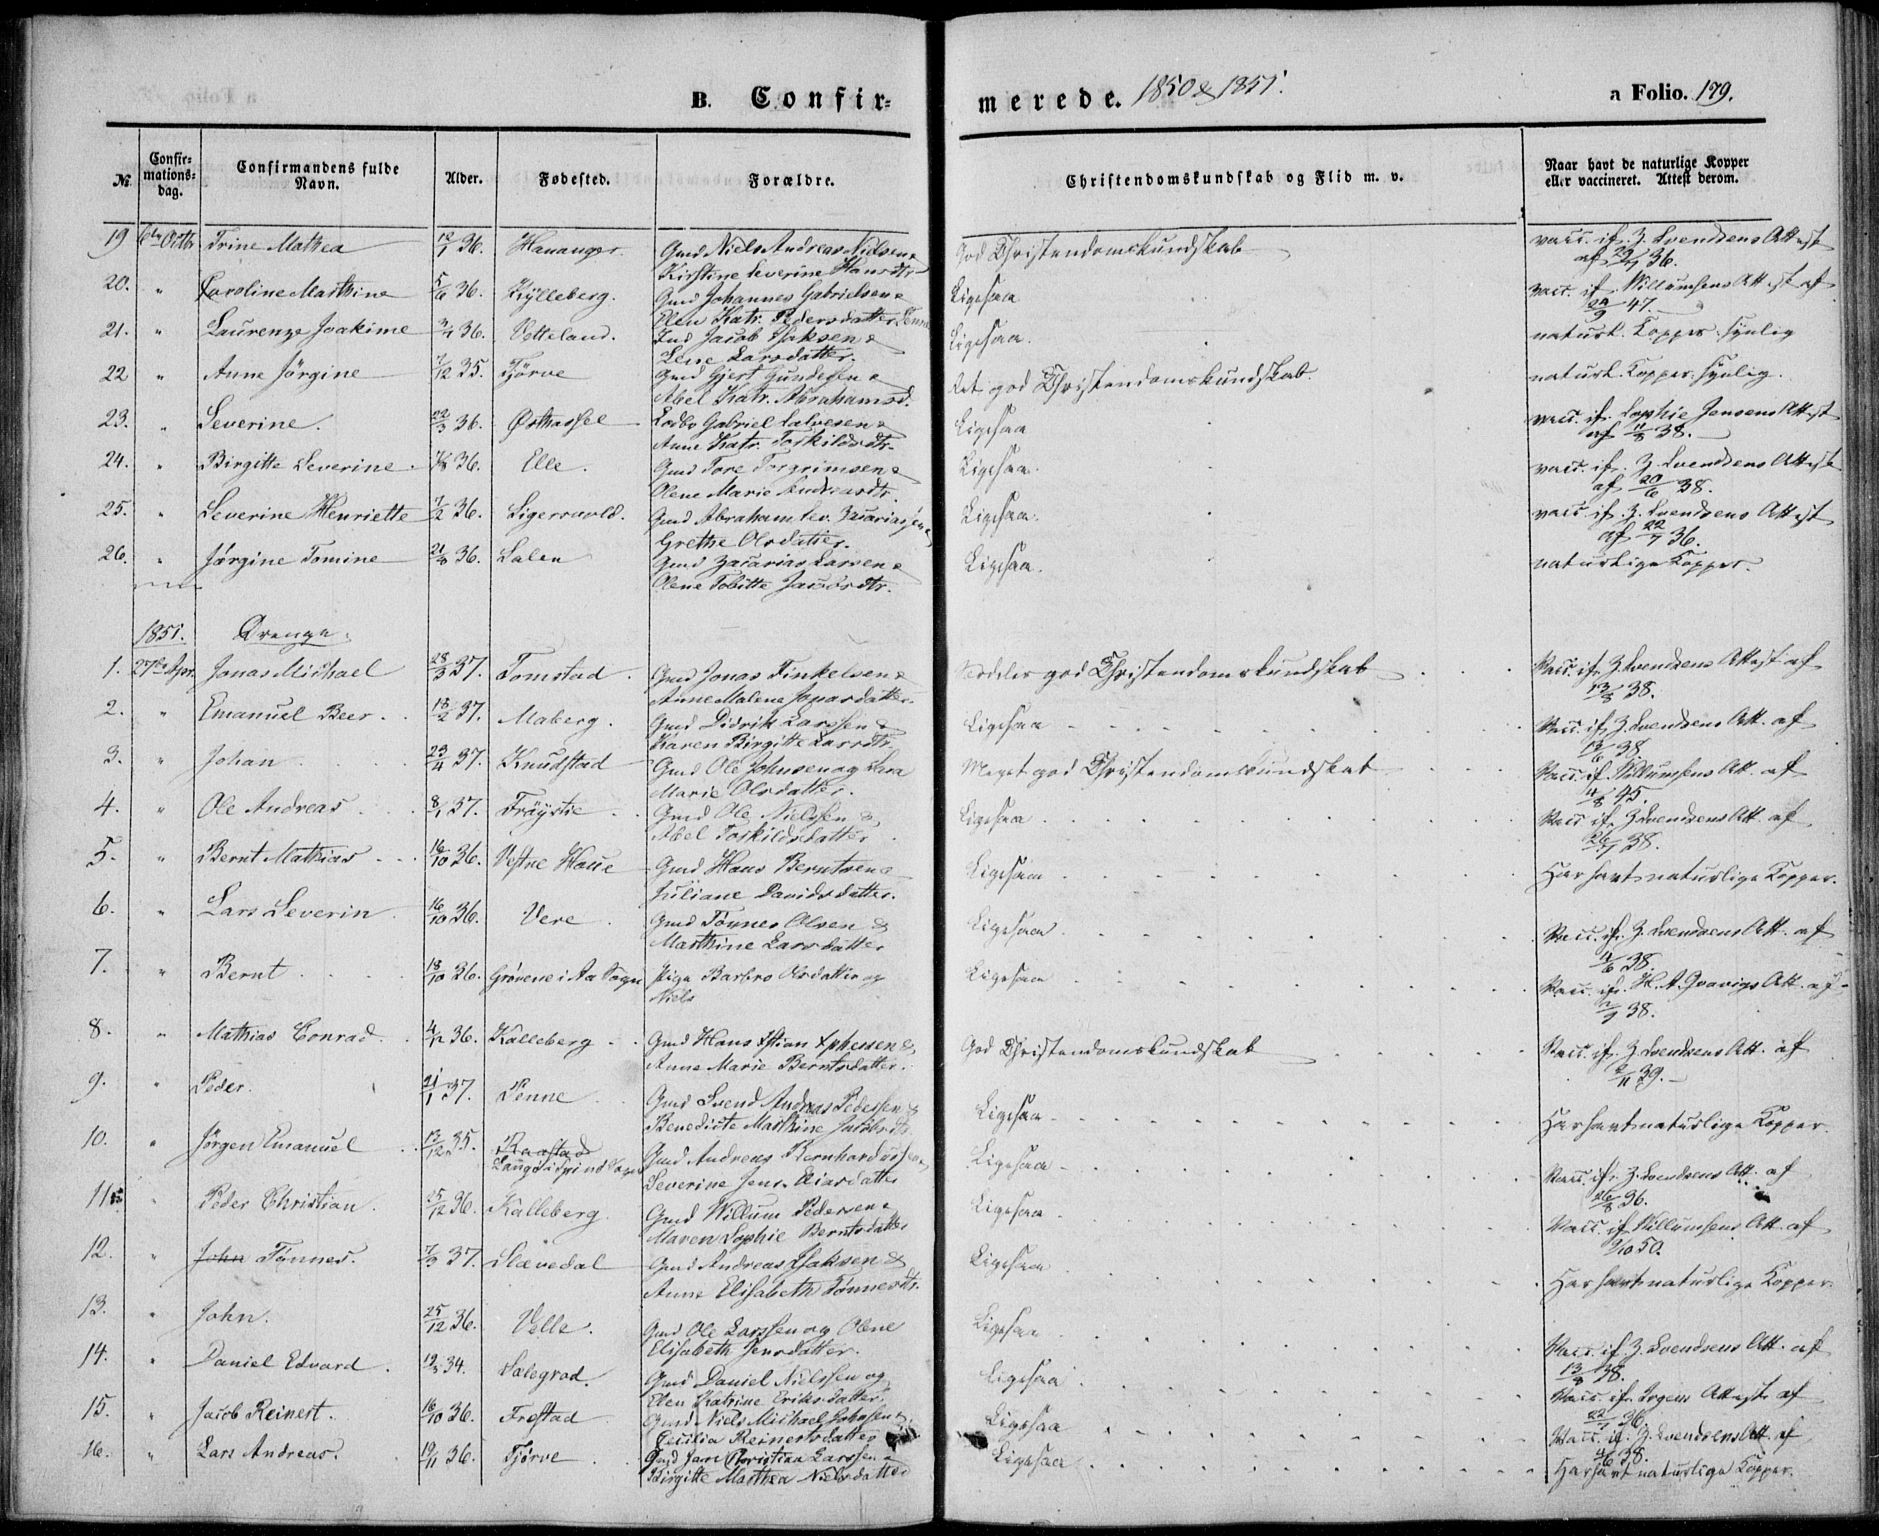 B. Confirmerede. 1850 & 1851. a Folio. 179.
No. Confirmationsdag. Confirmandens fulde Navn. Alder. Fødested. Forældre. Christendomskundskab og Flid m. v. Naar havt de naturlige Kopper eller vaccineret. Attest derom.
19 6te Octbr Trine Mathea 12/7 36. Hananger Gmd Niels Andreas Nielsen & God Christendomskundskab vacc. if. Z. Svendsens Attest
Kirstine Severine Hansdtr af 23/7 36.
20. " Caroline Marthine 5/6 36. Kylleberg. Gmd Johannes Gabrielsen & Ligesaa vacc. if. Willumsens Attest af
Elen Katr. Pedersdatter 29/9 47.
21. " Laurenze Joakime 3/4 36. Vetteland. Ind Jacob Isaksen & Ligesaa. naturl. Kopper synlig
Lene Larsdatter.
22 " Anne Jørgine 7/12 35. Tjørve Gmd Gjert Gundersen & Ret god Christendomskundskab. naturl. Kopper synlig.
Abel Katr. Abrahamsd.
23. " Severine. 22/3 36. Østhassel Gabriel Salvesen & Ligesaa vacc. if. Sophie Jensens Attest
Anne Katr. Torkildsdtr. af 11/8 38.
24. " Birgitte Severine 36. Elle. Gmd Tore Torgrimsen & Ligesaa. vacc. if. Z. Svendsens Attest
Olene Marie Andreasdtr. af 20/6 38.
25. " Severine Henriette 7/2 36. Ligersvold. Gmd Abraham Sev. Zacariasen & Ligesaa. vacc. if. Z. Svendsens Attest
Grethe Olsdatter. af 22/7 36.
26. " Jørgine Tomine 21/8 36. Lalen Gmd Zacarias Larsen & Ligesaa. naturlige Kopper.
Olene Tobitte Jacobsdtr.
1851. Drenge.
1. 27de Apr. Jonas Michael 28/3 37. Tomstad Gmd Jonas Tinkelsen & Særdeles god Christendomskundskab Vacc. if. Z. Svendsens Attest af
Anne Malene Jonasdatter. 13/8 38.
2. " Emanuel Beer 18/2 37. Maberg. Gmd Didrik Larssen & Ligesaa Vacc. if. Z. Svendsens Att. af
Karen Birgitte Larsdtr. 13/6 38.
3. " Johan 23/4 37. Knudstad Gmd Ole Johnsen og Sara Meget god Christendomskundskab Vacc. if. Willumsens Att. af
Marie Olsdatter. 4/8 45.
4. " Ole Andreas 8/1 37. Frøystie Gmd Ole Nielsen & Ligesaa Vacc if. Z Svendsens Att. af
Abel Torkildsdatter 26/7 38.
5. " Bernt Mathias 16/10 36. Vestre Haue Gmd Hans Berntsen & Ligesaa Har havt naturlige Kopper.
Juliane Davidsdatter.
6. " Lars Severin 16/10 36. Vere Gmd Tønnes Olsen & Ligesaa Vacc. if. Z. Svendsens Att. af
Marthine Larsdatter 11/6 38.
7. " Bernt 18/10 36. Grøvene i Aa Sogn Pige Barbro Olsdatter og Ligesaa Vacc. if. H. A. Gravigs Att. af
Niels 2/9 38.
8. " Mathias Conrad 4/12 36. Kalleberg Gmd Hans Xstian Xphersen & God Christendomskundskab Vacc. if. Z. Svendsens Att. af
Anne Marie Berntsdatter. 2/11 39.
9. " Peder. 21/1 37. Penne Gmd Svend Andreas Pedersen & Ligesaa Har havt naturlige Kopper.
Benedicte Marthine Jacobsdtr
10. " Jørgen Emanuel 13/12 35. Raastad Gmd Andreas Bernhardussen Ligesaa Vacc. if. Z. Svendsens Att. af
Langø i Spind Sogn Severine Jens Eliasdatter 26/8 36.
11. " Peder Christian. 25/12 36. Kalleberg. Gmd Willum Pedersen & Ligesaa Vacc. if Willumsens Att. af
Maren Sophie Berntsdatter 9/10 50.
12. " John Tønnes. 7/3 37. Slævedal Gmd Andreas Isaksen & Ligesaa Har havt naturlige Kopper.
Anne Elisabeth Tønnesdtr.
13. " John. 25/12 36. Velle. Gmd Ole Larssen og Olene Ligesaa Vacc. if Z. Svendsens Att. af
Elisabeth Jensdatter. 13/8 38.
14. " Daniel Edvard 34. Sælegrod. Gmd Daniel Nielssen og Ligesaa Vacc. if. Attest af
Elen Katrine Eriksdatter. 22/7 36.
15. " Jacob Reinert. 16/10 36. Frestad Gmd Niels Michael Johnsen & Ligesaa Vacc. if. Z. Svendsens Att. af
Cecilia Reinertsdatter 4/6 38.
16. " Lars Andreas. 19/11 36. Tjørve Gmd Jan Christian Larssen & Ligesaa Har havt naturlige Kopper.
Birgitte Marthea Nielsdatter